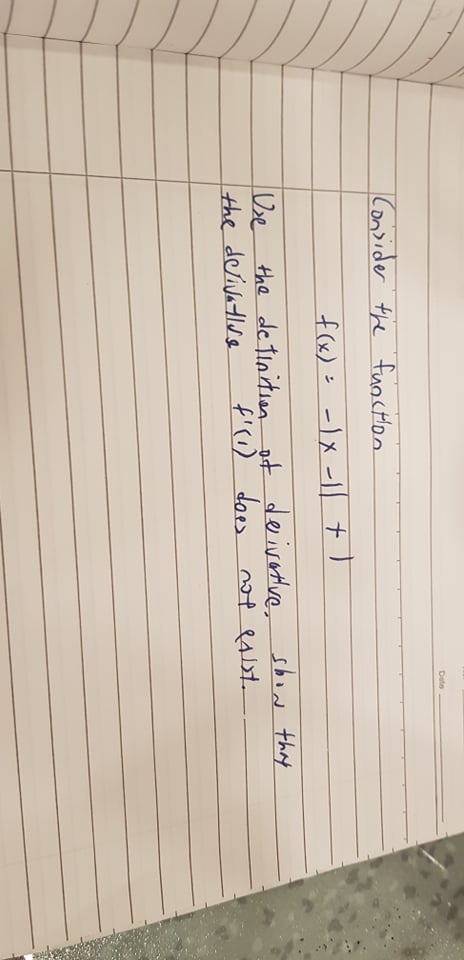 Date
Consider the function
f(x) = -|x-1| + 1
Use the definition of derivative, show that
the derivative f'(1) does not exist.